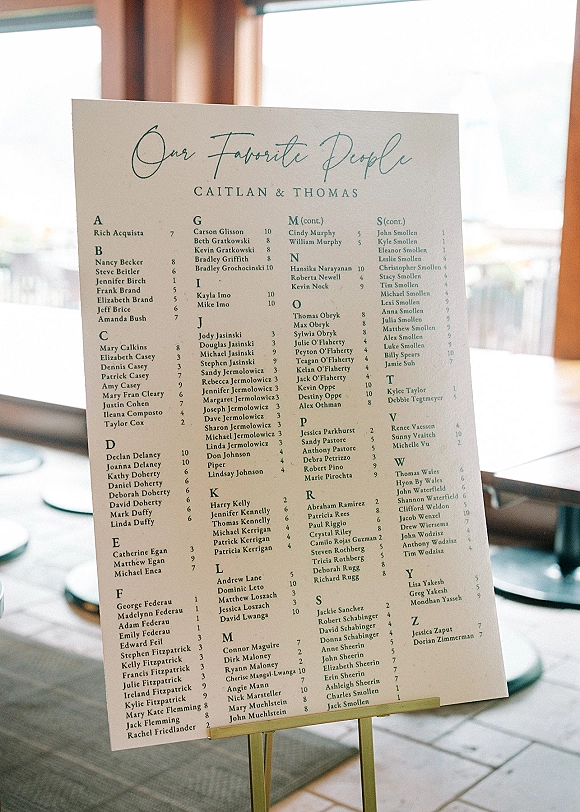 Our Favorite People
CAITLAN & THOMAS
A
Rich Acquista 7
B
Nancy Becker 8
Steve Beitler 6
Jennifer Birch 1
Frank Brand 5
Elizabeth Brand 5
Jeff Brice 6
Amanda Bush 7
C
Mary Calkins 8
Elizabeth Casey 3
Dennis Casey 3
Patrick Casey 7
Amy Casey 9
Mary Fran Cleary 6
Justin Cohen 7
Ileana Composto 4
Taylor Cox 2
D
Declan Delaney 10
Joanna Delaney 10
Kathy Doherty 6
Daniel Doherty 6
Deborah Doherty 6
David Doherty 6
Mark Duffy 6
Linda Duffy 6
E
Catherine Egan 3
Matthew Egan 9
Michael Enea 7
F
George Federau 1
Madelynn Federau 1
Adam Federau 1
Emily Federau 1
Edward Feil 3
Stephen Fitzpatrick 3
Kelly Fitzpatrick 3
Francis Fitzpatrick 3
Julie Fitzpatrick 3
Ireland Fitzpatrick 9
Kylie Fitzpatrick 9
Mary Kate Flemming 8
Jack Flemming 8
Rachel Friedlander 2
G
Carson Glisson 10
Beth Gratkowski 8
Kevin Gratkowski 8
Bradley Griffith 8
Bradley Grochocinski 10
I
Kayla Imo 10
Mike Imo 10
J
Jody Jasinski 3
Douglas Jasinski 3
Michael Jasinski 9
Stephen Jasinski 9
Sandy Jermolowicz 3
Rebecca Jermolowicz 3
Jennifer Jermolowicz 3
Margaret Jermolowicz 3
Joseph Jermolowicz 3
Dave Jermolowicz 3
Sharon Jermolowicz 3
Michael Jermolowicz 3
Linda Jermolowicz 3
Don Johnson 4
Piper 4
Lindsay Johnson 4
K
Harry Kelly 2
Jennifer Kennelly 6
Thomas Kennelly 6
Michael Kerrigan 4
Patrick Kerrigan 4
Patricia Kerrigan 4
L
Andrew Lane 5
Dominic Leto 10
Matthew Loszach 3
Jessica Loszach 3
David Lwanga 10
M
Connor Maguire 7
Dirk Maloney 2
Ryann Maloney 2
Cherise Mangal-Lwanga 10
Angie Mann 7
Nick Marsteller 10
Mary Muehlstein 8
John Muehlstein 8
M (cont.)
Cindy Murphy 5
William Murphy 5
N
Hansika Narayanan 10
Roberta Newell 4
Kevin Nock 9
O
Thomas Obryk 8
Max Obryk 8
Sylwia Obryk 8
Julie O'Flaherty 4
Peyton O'Flaherty 4
Teagan O'Flaherty 4
Kelan O'Flaherty 4
Jack O'Flaherty 4
Kevin Oppe 10
Destiny Oppe 10
Alex Othman 8
P
Jessica Parkhurst 2
Sandy Pastore 5
Anthony Pastore 5
Debra Petrizzo 3
Robert Pino 9
Marie Pirochta 9
R
Abraham Ramirez 2
Patricia Rees 8
Paul Riggio 6
Crystal Riley 8
Camilo Rojas Guzman 2
Steven Rothberg 5
Tricia Rothberg 5
Deborah Rugg 8
Richard Rugg 8
S
Jackie Sanchez 2
Robert Schabinger 4
David Schabinger 4
Donna Schabinger 4
Anne Sheerin 5
John Sheerin 5
Elizabeth Sheerin 7
Erin Sheerin 7
Ashleigh Sheerin 7
Charles Smollen 1
Jack Smollen 1
S (cont.)
John Smollen 1
Kyle Smollen 1
Eleanor Smollen 1
Leslie Smollen 4
Christopher Smollen 4
Stacy Smollen 4
Tim Smollen 4
Michael Smollen 4
Lexi Smollen
Anna Smollen
Julia Smollen
Matthew Smollen
Alex Smollen
Luke Smollen
Billy Spears 10
Jamie Suh 7
T
Kylee Taylor 1
Debbie Tegtmeyer 5
V
Renee Vaessen 4
Sunny Vraitch 10
Michelle Vu 2
W
Thomas Wales 6
Hyon By Wales 6
John Waterfield 6
Shannon Waterfield 6
Clifford Weldon
Jacob Wenzel 10
Drew Wiersema 7
John Wodzisz 4
Anthony Wodzisz 4
Tim Wodzisz 4
Y
Lisa Yakesh 5
Greg Yakesh 5
Mondhan Yasseh 9
Z
Jessica Zaput 7
Dorian Zimmerman 7